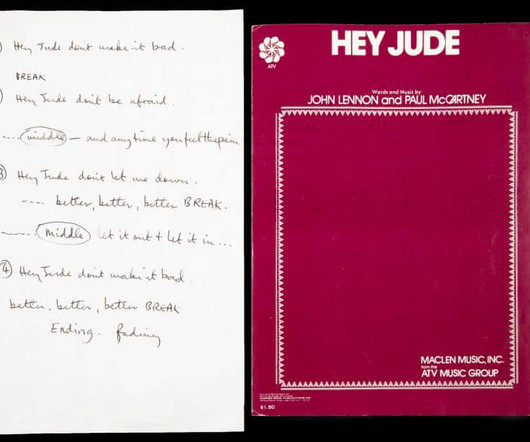 ) Hey Jude don't make it bad.
BREAK
) Hey Jude don't be afraid.
.... middle — and any time you feel the pain
③ Hey Jude don't let me down.
.... better, better, better BREAK.
...... middle let it out + let it in ...
④ Hey Jude don't make it bad
better, better, better BREAK
Ending. fading
ATV
HEY JUDE
Words and Music by
JOHN LENNON and PAUL McCARTNEY
MACLEN MUSIC, INC.
from the
ATV MUSIC GROUP
$1.50